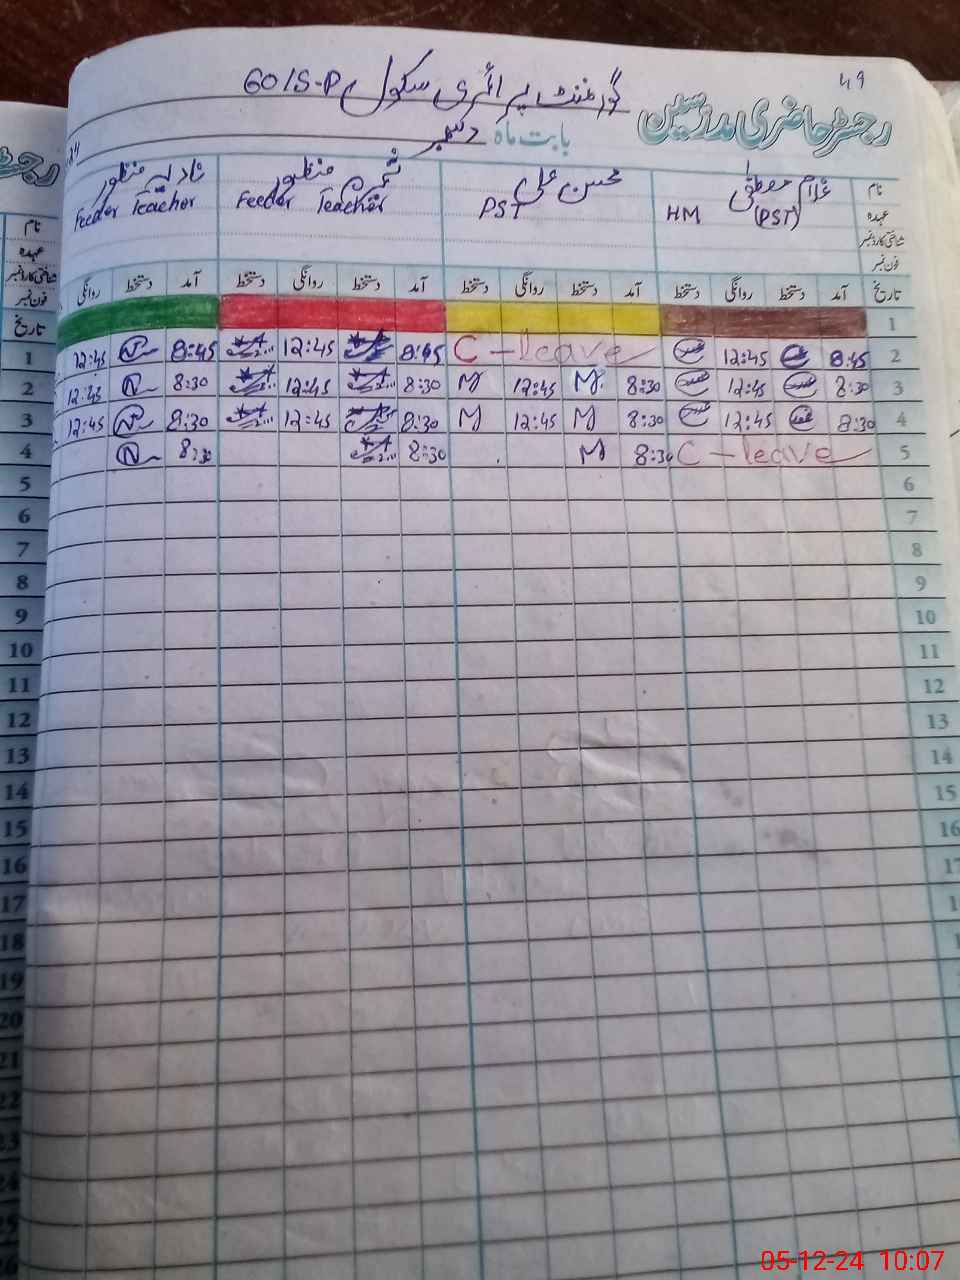 49
گورنمنٹ پرائمری سکول 60/S-P
رجسٹر حاضری مدرسین
بابت ماہ دسمبر
نام غلام مصطفیٰ محسن علی منظور نادیہ منظور
عہدہ HM (PST) PST Feeder Teacher Feeder Teacher
شناختی کارڈ نمبر
فون نمبر
تاریخ آمد دستخط روانگی دستخط آمد دستخط روانگی دستخط آمد دستخط روانگی دستخط آمد دستخط روانگی
1
2 8:45 12:45 C-leave 8:45 12:45 8:45 N 12:45
3 8:30 12:45 8:30 M 12:45 M 8:30 12:45 8:30 N 12:45
4 8:30 12:45 8:30 M 12:45 M 8:30 12:45 8:30 N 12:45
5 C-leave 8:30 M 8:30 8:30 N
6
7
8
9
10
11
12
13
14
15
16
نام
عہدہ
شناختی کارڈ نمبر
فون نمبر
تاریخ
1
2
3
4
5
6
7
8
9
10
11
12
13
14
15
16
17
18
19
20
21
22
23
24
25
05-12-24 10:07